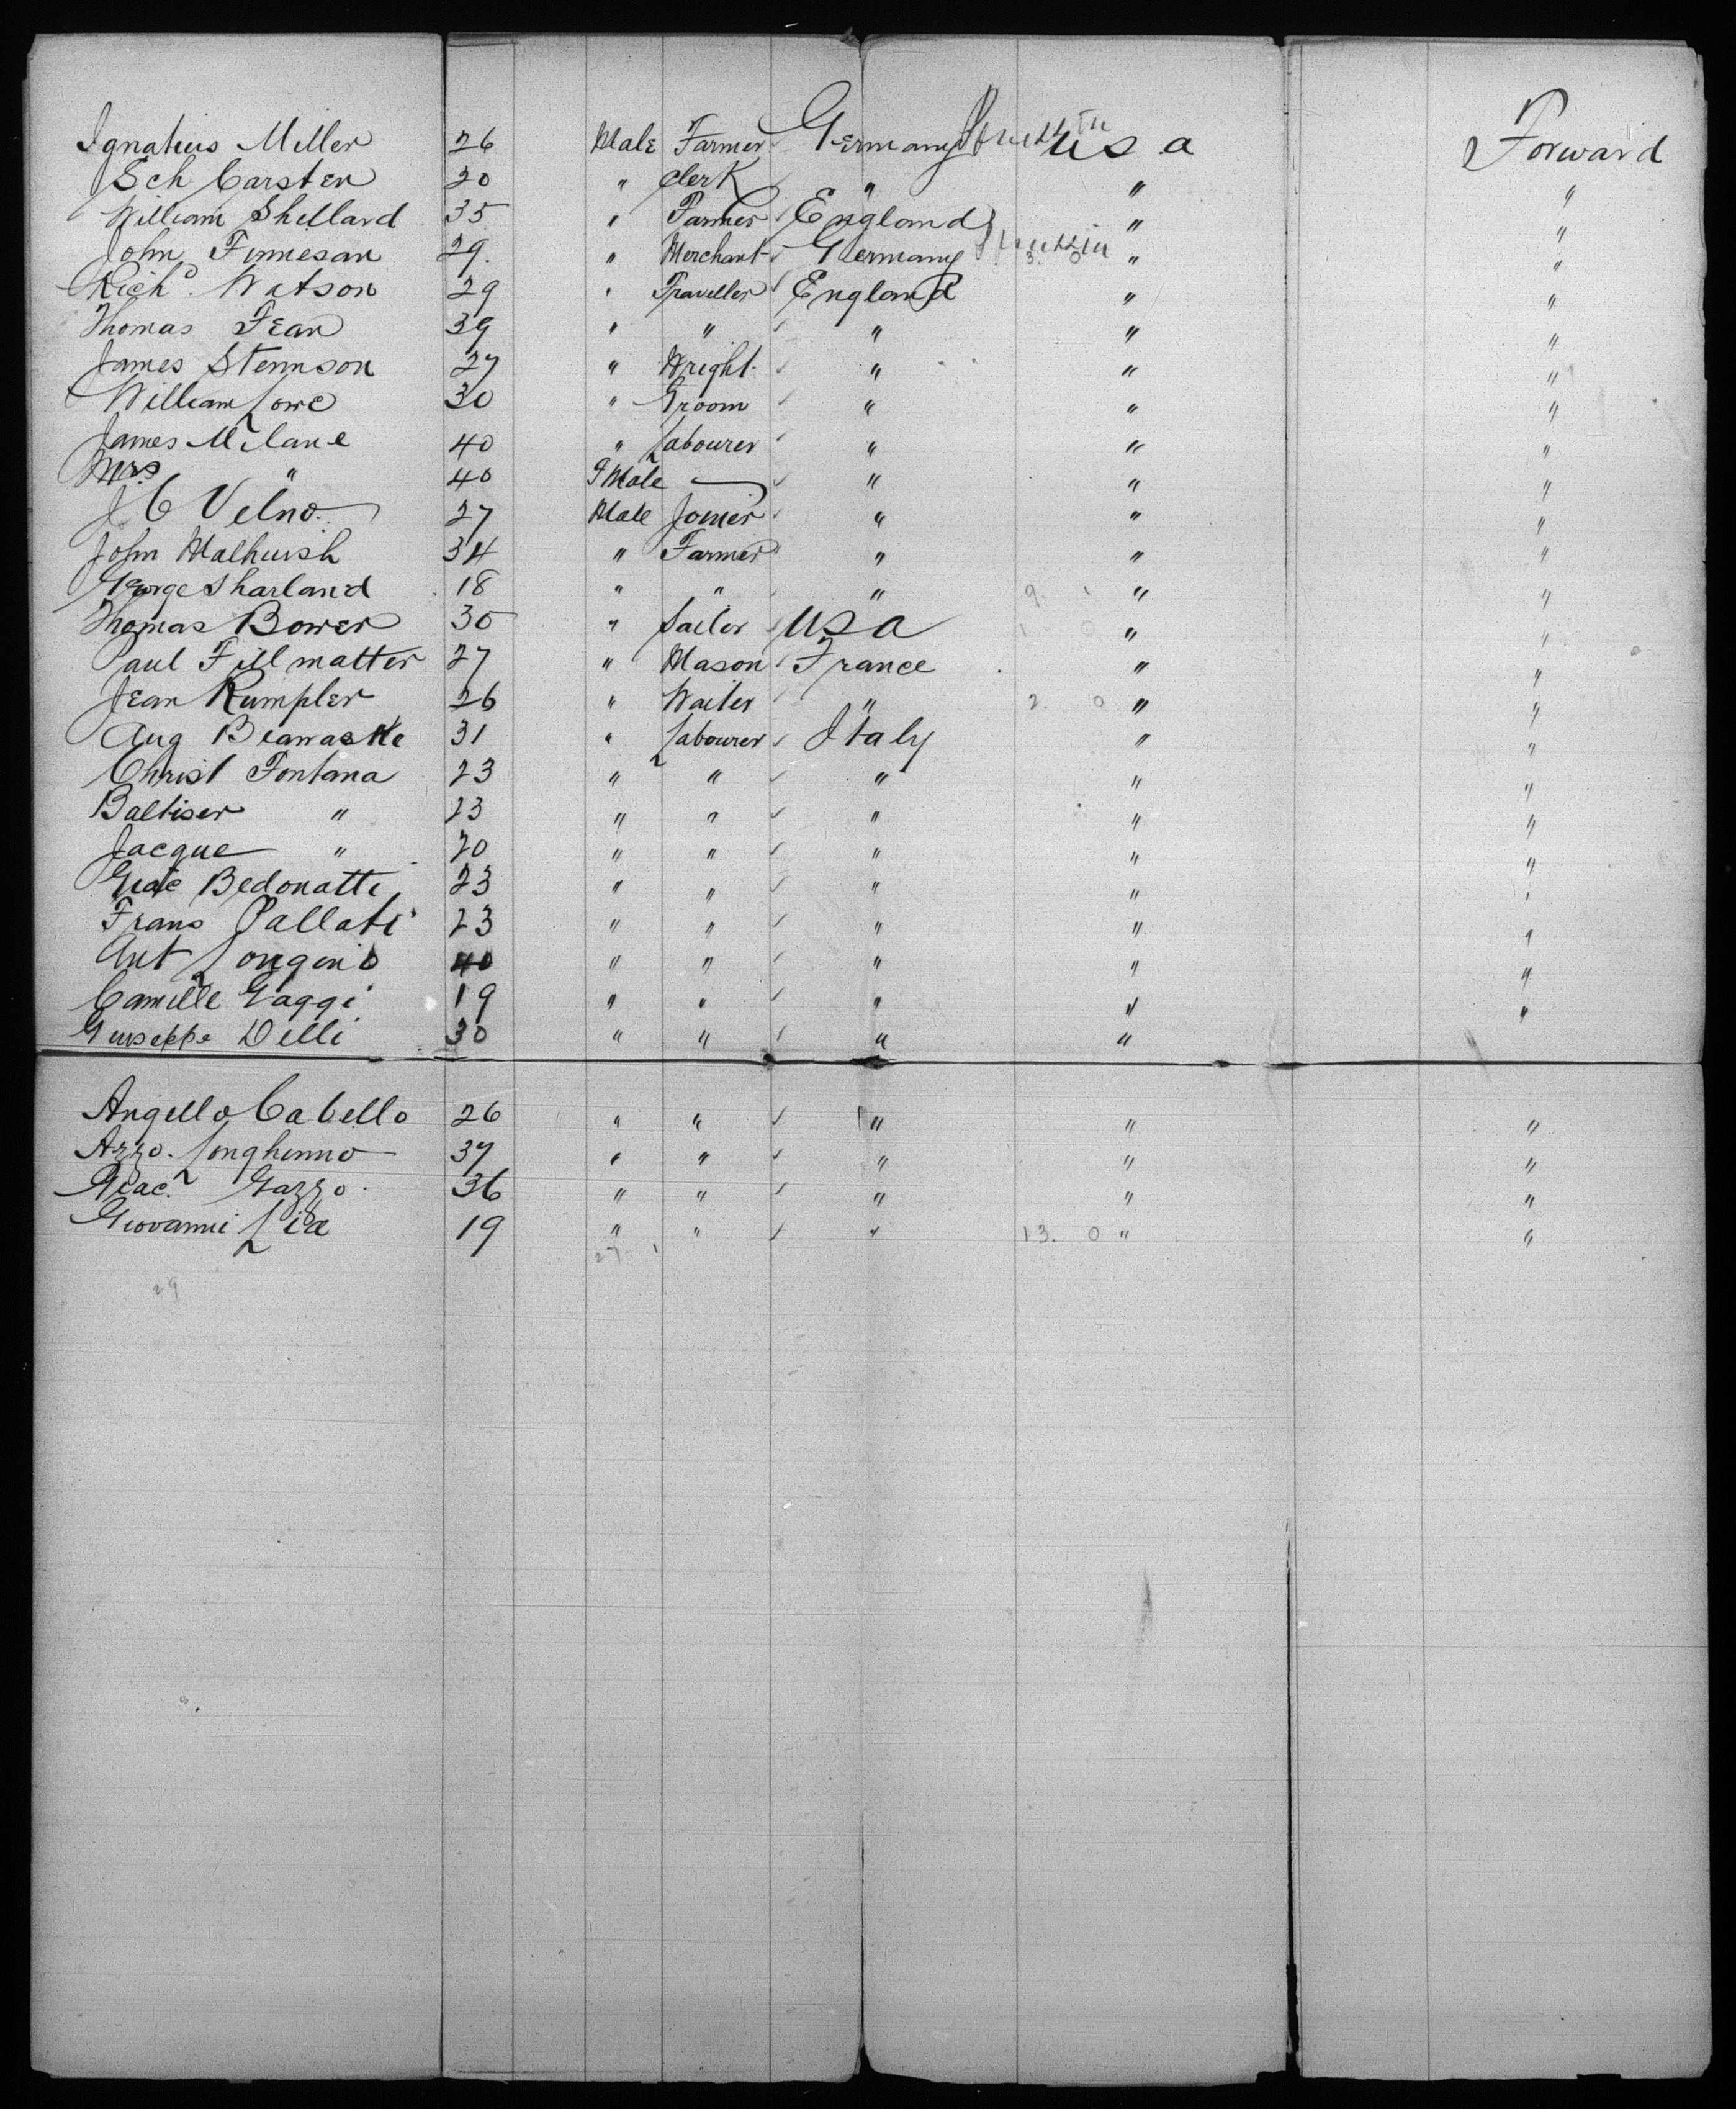 Ignatius Miller 26 Male Farmer Germany Prussia U S a Forward
Sch Carsten 20 " Clerk " " "
William Shellard 35 " Farmer England " "
John Finnesan 29. " Merchant Germany Prussia 3. 0 " "
Richd. Watson 29 " Traveller England " "
Thomas Fear 39 " " " " "
James Stennson 27 " Wright " " "
William Lowe 30 " Groom " " "
James McLane 40 " Labourer " " "
Mrs " 40 F Male — " " "
J C Velno 27 Male Joiner " " "
John Malhuish 34 " Farmer " " "
George Sharland 18 " " " 9. 1 " "
Thomas Bower 30 " Sailor USa 1 0 " "
Paul Fillmatter 27 " Mason France " "
Jean Rumpler 26 " Waiter " 2. 0 " "
Aug 31 " Labourer Italy " "
Christ Fontana 23 " " " " "
Baltiser " 23 " " " " "
Jacque " 20 " " " " "
Bedonatti 23 " " " " "
Frans Pallati 23 " " " " "
Ant Longino 40 " " " " "
Camille Gaggi 19 " " " " "
Guiseppe Delli 30 " " " "
Angello Cabello 26 " " " " "
Azzo. Longhenno 37 " " " " "
Giac. Gazzo. 36 " " " " "
Giovanni Lia 19 " " " 13. 0 " "
27. 1
29